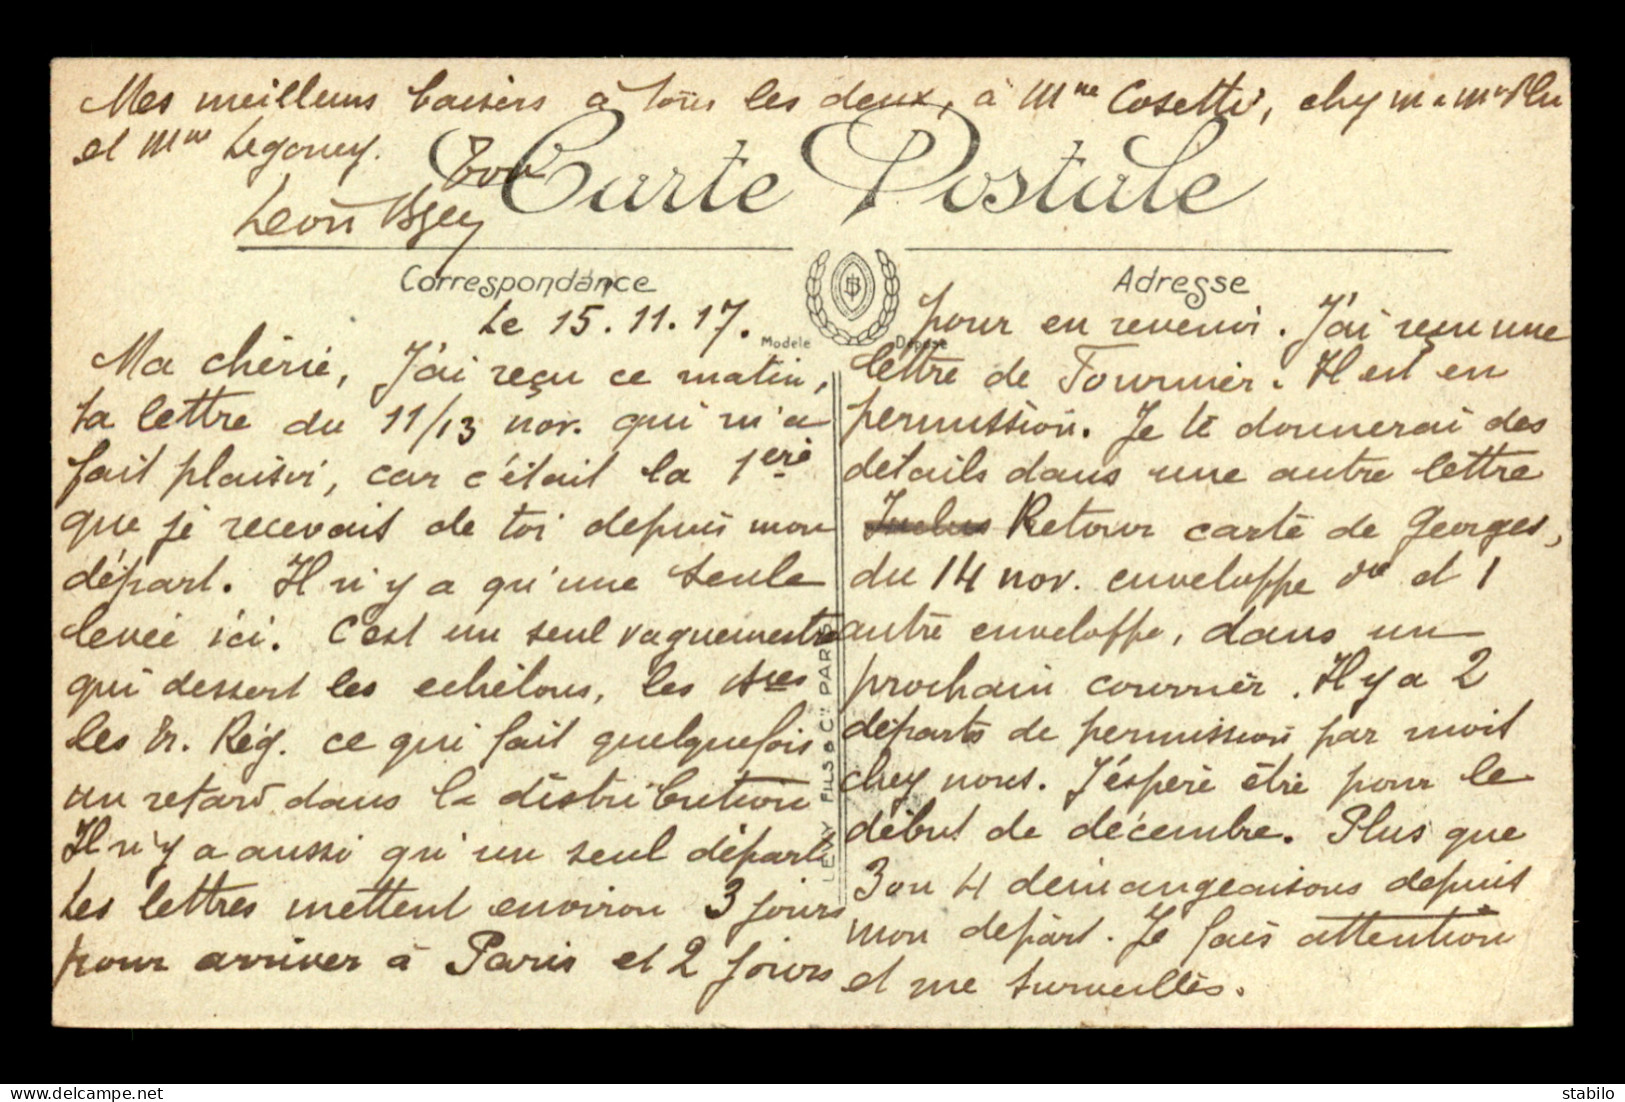 Mes meilleurs baisers à tous les deux, à Mme Cosette, chez M et Mme
et Mme Legouey. Ton
Léon
Carte Postale
Correspondance
Adresse
Modèle Déposé
Le 15.11.17.
Ma chérie, J'ai reçu ce matin,
ta lettre du 11/13 nov. qui m'a
fait plaisir, car c'était la 1ère
que je recevais de toi depuis mon
départ. Il n'y a qu'une seule
levée ici. C'est un seul vaguemestre
qui dessert les échelons, les
les Rég. ce qui fait quelquefois
un retard dans la distribution
Il n'y a aussi qu'un seul départ.
Les lettres mettent environ 3 jours
pour arriver à Paris et 2 jours
LEVY FILS & Cie PARIS
pour en revenir. J'ai reçu une
lettre de Fournier. Il est en
permission. Je te donnerai des
détails dans une autre lettre
Inclus Retour carte de Georges,
du 14 nov. enveloppe et 1
autre enveloppe, dans un
prochain courrier. Il y a 2
départs de permission par mois
chez nous. J'espère être pour le
début de décembre. Plus que
3 ou 4 démangeaisons depuis
mon départ. Je fais attention
et me surveille.
stabilo